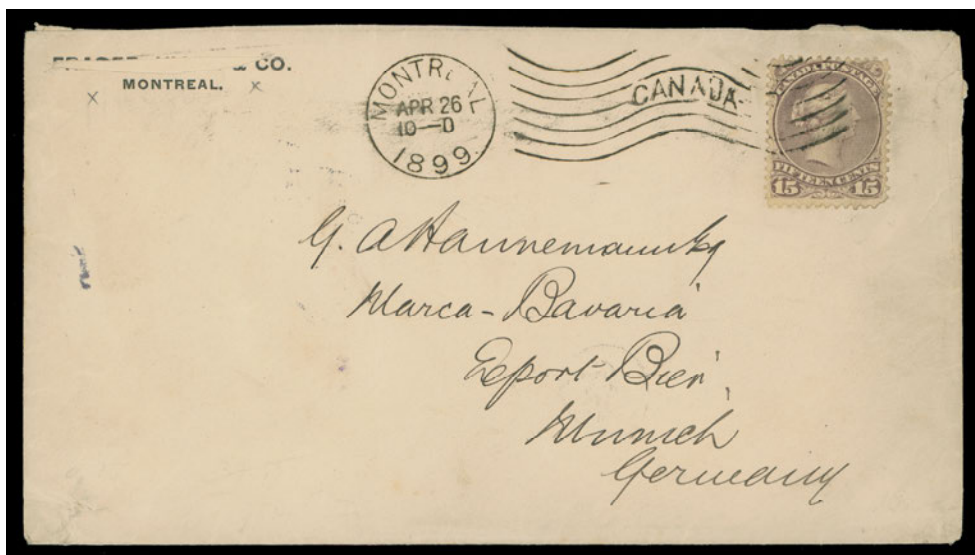 & CO.
MONTREAL.
MONTREAL
APR 26
10-D
1899
CANADA
CANADA POSTAGE
FIFTEEN CENTS
15 15
G. A Hannemann Esq
Marca-Bavaria
Export Bier,
Munich
Germany